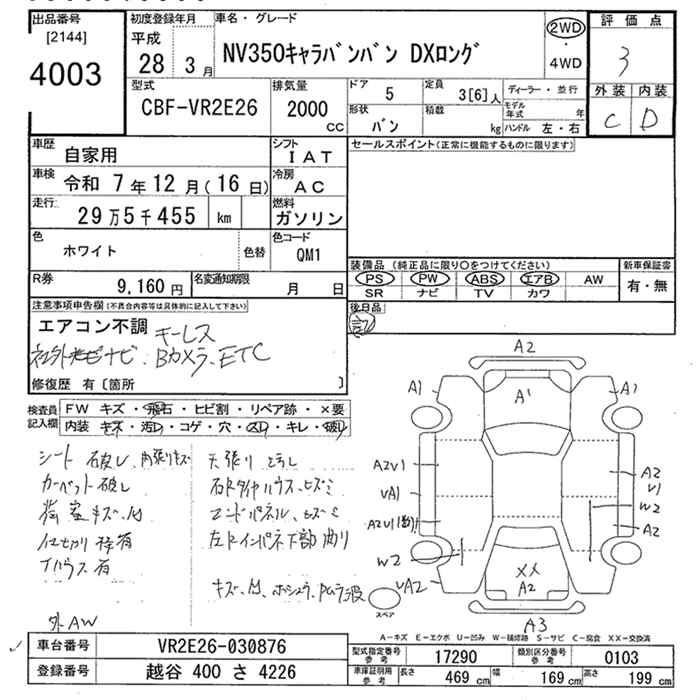 出品番号
[2144]
4003
初度登録年月
平成
28 3月
車名・グレード
NV350キャラバンバン DXロング
2WD
・
4WD
評価点
3
外装 内装
C D
型式
CBF-VR2E26
排気量
2000
CC
ドア
5
定員
3[6]人
ディーラー・並行
形状
バン
積載
kg
モデル年式 年
ハンドル 左・右
車歴
自家用
シフト
IAT
車検
令和 7年12月(16日)
冷房
AC
走行
29万5千455 km
燃料
ガソリン
色
ホワイト
色替
色コード
QM1
R券
9,160円
名変通知期限
月 日
セールスポイント(正常に機能するものに限ります)
装備品 (純正品に限り○をつけてください)
PS PW ABS エアB AW
SR ナビ TV カワ
新車保証書
有・無
後日品
記
注意事項申告欄(不具合内容等は具体的に記入して下さい)
エアコン不調 キーレス
社外ナビ、Bカメラ、ETC
修復歴 有〔箇所 〕
検査員記入欄
FW キズ・飛石・ヒビ割・リペア跡・×要
内装 キズ・汚れ・コゲ・穴・スレ・キレ・破れ
シート 破レ、内張りキズ
カーペット破レ
荷室キズ、M
仕切り棒有
Tハウス有
外AW
天張り ヨゴレ
右Rタイヤハウス、ヒズミ
エンドパネル、ヒズミ
左Rインパネ下部曲り
キズ、M、ホシュウ、Pムラ
A2
A1
A1
A1
A2V1
VA1
A2U1
W2
VA2
A2
V1
W2
A2
XX
A2
A3
スペア
A-キズ E-エクボ U-凹み W-補修跡 S-サビ C-腐食 XX-交換済
車台番号
VR2E26-030876
登録番号
越谷 400 さ 4226
型式指定番号
参考
17290
類別区分番号
参考
0103
車庫証明用
参考
長さ
469 cm
幅
169 cm
高さ
199 cm